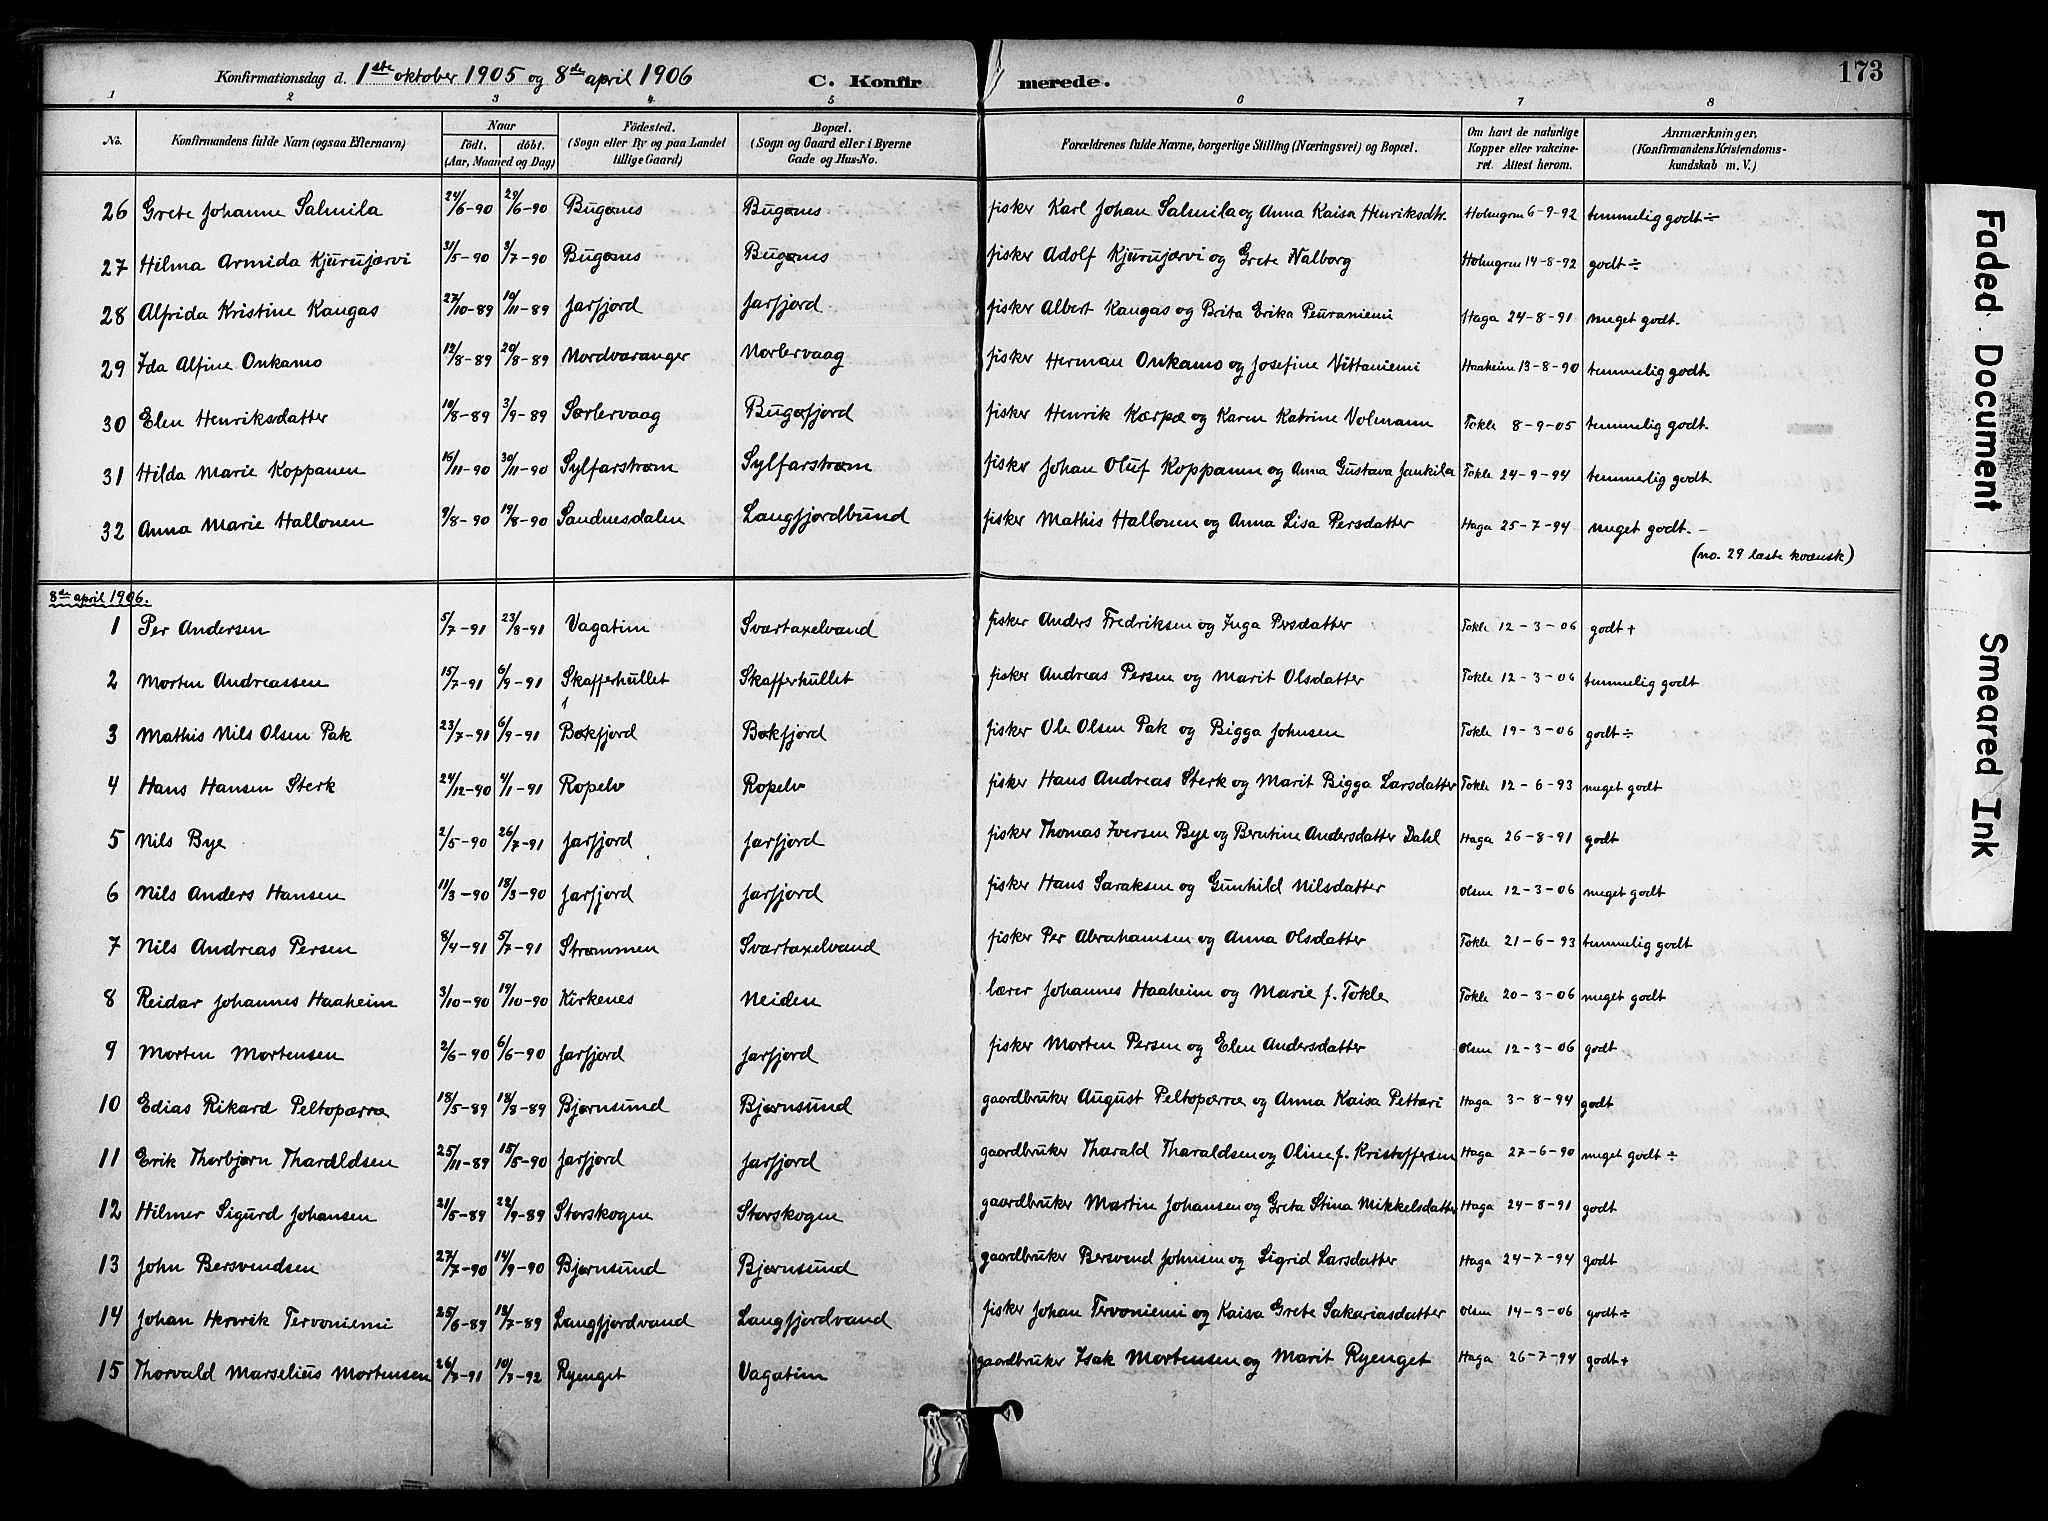 Konfirmationsdag d. 1ste oktober 1905 og 8de april 1906 C. Konfirmerede. 173
1 2 3 4 5 6 7 8
No. Konfirmandens fulde Navn (ogsaa Efternavn) Naar født. døbt. (Aar, Maaned og Dag) Fødested. (Sogn eller By og paa Landet tillige Gaard) Bopæl. (Sogn og Gaard eller i Byerne Gade og Hus-No. Forældrenes fulde Navne, borgerlige Stilling (Næringsvei) og Bopæl. Om havt de naturlige Kopper eller vakcineret. Attest herom. Anmærkninger, (Konfirmandens Kristendomskundskab m. V.)
26 Grete Johanne Salmila 24/6-90 29/6-90 Bugønes Bugønes fisker Karl Johan Salmila og Anna Kaisa Henriksdtr. Holmgren 6-9-92 temmelig godt÷
27 Hilma Armida Kjurujærvi 31/5-90 3/7-90 Bugønes Bugønes fisker Adolf Kjurujærvi og Grete Valborg Holmgren 14-8-92 godt÷
28 Alfrida Kristine Kangas 27/10-89 10/11-89 Jarfjord Jarfjord fisker Albert Kangas og Brita Erika Peuraniemi Haga 24-8-91 meget godt.
29 Ida Alfine Onkamo 12/8-89 20/8-89 Nordvaranger Norlervaag fisker Herman Onkamo og Josefine Vittaniemi Haaheim 13-8-90 temmelig godt.
30 Elen Henriksdatter 10/8-89 3/9-89 Sørlervaag Bugøfjord fisker Henrik Kærpæ og Karen Katrine Volmann Tokle 8-9-05 temmelig godt.
31 Hilda Marie Koppanen 15/11-90 30/11-90 Sylfarstrøm Sylfarstrøm fisker Johan Oluf Koppanen og Anna Gustava Jankila Tokle 24-9-94 temmerlig godt.
32 Anna Marie Hallonen 9/8-90 19/8-90 Sandnesdalen Langfjordbund fisker Mathis Hallonen og Anna Lisa Persdatter Haga 25-7-94 meget godt.-
(no. 29 læste kvænsk)
8de april 1906.
1 Per Andersen 5/7-91 23/8-91 Vagatim Svartaxelvand fisker Anders Fredriksen og Inga Persdatter Tokle 12-3-06 godt+
2 Morten Andreassen 15/7-91 6/9-91 Skafferhullet Skafferhullet fisker Andreas Persen og Marit Olsdatter Tokle 12-3-06 temmelig godt
3 Mathis Nils Olsen Pak 23/7-91 6/9-91 Bøkfjord Bøkfjord fisker Ole Olsen Pak og Bigga Johnsen Tokle 19-3-06 godt÷
4 Hans Hansen Sterk 24/12-90 4/1-91 Ropelv Ropelv fisker Hans Andreas Sterk og Marit Bigga Larsdatter Tokle 12-6-93 meget godt
5 Nils Bye 2/5-90 26/7-91 Jarfjord Jarfjord fisker Thomas Iversen Bye og Berntine Andersdatter Dahl Haga 26-8-91 godt
6 Nils Anders Hansen 11/3-90 18/3-90 Jarfjord Jarfjord fisker Hans Saraksen og Gunhild Nilsdatter Olsen 12-3-06 meget godt
7 Nils Andreas Persen 8/4-91 5/7-91 Strømmen Svartaxelvand fisker Per Abrahamsen og Anna Olsdatter Tokle 21-6-93 temmelig godt
8 Reidar Johannes Haaheim 3/10-90 19/10-90 Kirkenes Neiden lærer Johannes Haaheim og Marie f. Tokle Tokle 20-3-06 meget godt
9 Morten Mortensen 2/6-90 6/6-90 Jarfjord Jarfjord fisker Morten Persen og Elen Andersdatter Olsen 12-3-06 godt
10 Edias Rikard Peltopærræ 18/5-89 18/8-89 Bjørnsund Bjørnsund gaardbruker August Peltopærræ og Anna Kaisa Pettæri Haga 3-8-94 godt
11 Erik Thorbjørn Tharaldsen 25/11-89 15/5-90 Jarfjord Jarfjord gaardbruker Tharald Tharaldsen og Oline f. Kristoffersen Haga 27-6-90 meget godt÷
12 Hilmer Sigurd Johansen 21/5-89 22/9-89 Storskogen Storskogen gaardbruker Martin Johansen og Greta Stina Mikkelsdatter Haga 24-8-91 godt
13 John Bersvendsen 27/7-90 14/9-90 Bjørnsund Bjørnsund gaardbruker Bersvend Johnsen og Sigrid Larsdatter Haga 24-7-94 godt
14 Johan Henrik Tervoniemi 25/6-89 13/7-89 Langfjordvand Langfjordvand fisker Johan Tervoniemi og Kaisa Grete Sakariasdatter Olsen 14-3-06 godt÷
15 Thorvald Marselius Mortensen 26/7-91 10/7-92 Ryenget Vagatim gaardbruker Isak Mortensen og Marit Ryenget Haga 26-7-94 godt+
Faded Document
Smeared Ink